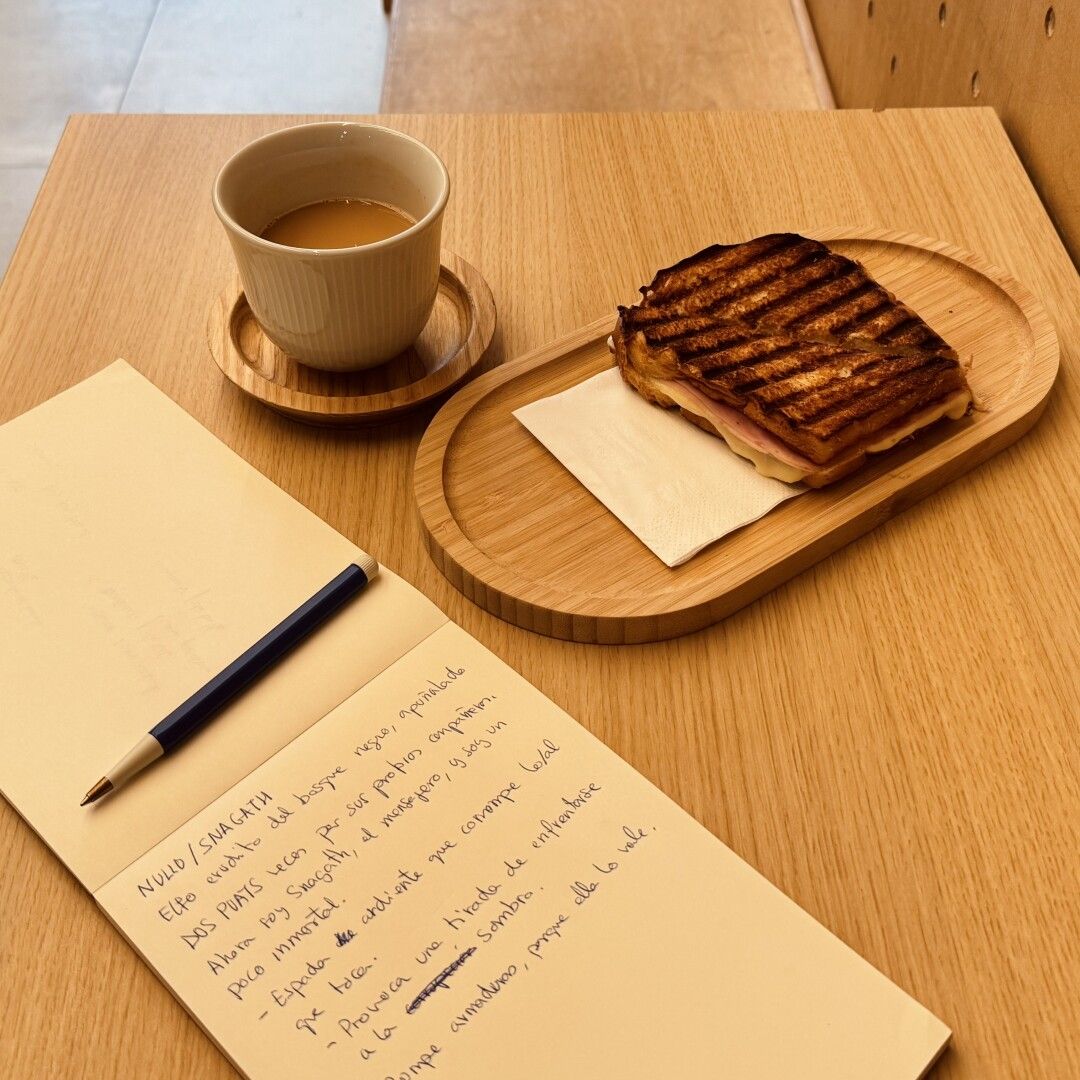 NULLO / SNAGATH
Elfo erudito del bosque negro, apuñalado
DOS PUATS veces por sus propios compañeros.
Ahora soy Snagath, el mensajero, y soy un
poco inmortal.
- Espada ardiente que corrompe lo/al
que toca.
- Provoca una tirada de enfrentarse
a la Sombra.
Rompe armaduras, porque ella lo vale.